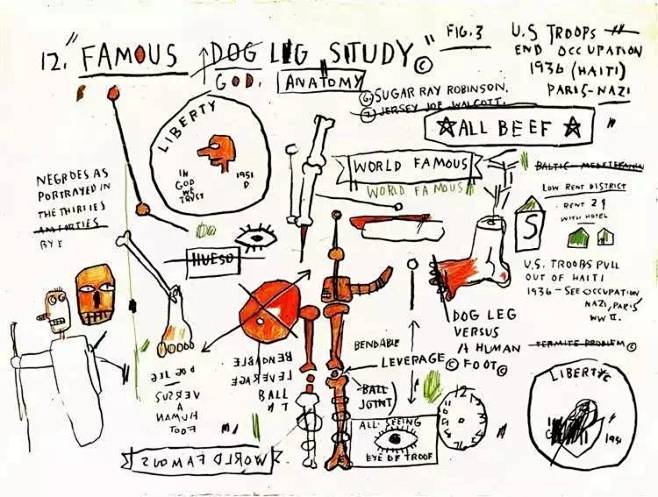 12. "FAMOUS DOG LEG STUDY"©
GOD. ANATOMY
FIG.3
U.S TROOPS
END OCCUPATION
1936 (HAITI)
PARIS-NAZI
6 SUGAR RAY ROBINSON.
7 JERSEY JOE WALCOTT.
ALL BEEF
LIBERTY
IN
GOD
WE
TRUST
1951
D
WORLD FAMOUS
WORLD FAMOUS
LOW RENT DISTRICT
RENT 29
WITH HOTEL
S
NEGROES AS
PORTRAYED IN
THE THIRTIES
HUESO
U.S. TROOPS PULL
OUT OF HAITI
1936 - SEE OCCUPATION
NAZI, PARIS
WW II.
TERMITE PROBLEM ©
DOG LEG
VERSUS
A HUMAN
FOOT ©
BENDABLE
LEVERAGE ©
BALL
JOINT)
BENDABLE
LEVERAGE
BALL
VERSUS
A
HUMAN
FOOT
ALL SEEING
EYE OF TROOF
12
WORLD FAMOUS
LIBERTY©
1951